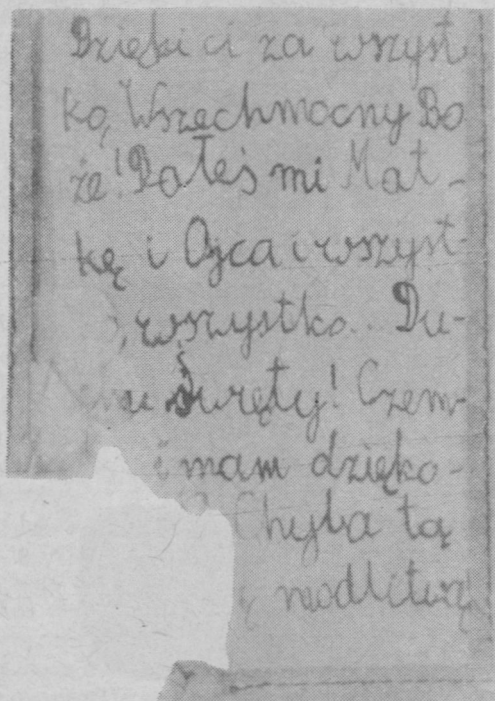 Dzięki ci za wszyst
ko, Wszechmocny Bo
że! Dałeś mi Mat-
kę i Ojca i wszyst-
, wszystko.. Du-
Święty! Czem-
i mam dzięko-
? Chyba tą
modlitwą